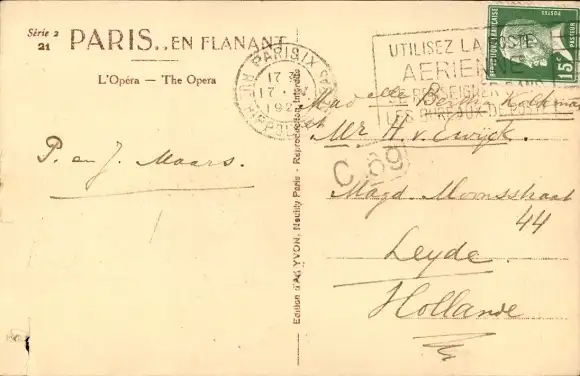 Série 2
21
PARIS.. EN FLANANT
L'Opéra — The Opera
P. en J. Maars.
Edition d'Art YVON, Neuilly Paris - Reproduction Interdite
PARIS IX
17
17
192
UTILISEZ LA POSTE
AERIENNE
SE RENSEIGNER
LES BUREAUX DE POSTE
POSTES
REPUBLIQUE FRANÇAISE
PASTEUR
15c
Mad elle Bertha
et
Mr H. v. Ewijck.
C 69
Magd. Moonsstraat
44
Leyde.
Hollande